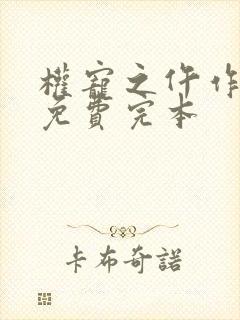 權寵之仵作
免費完本
卡布奇諾